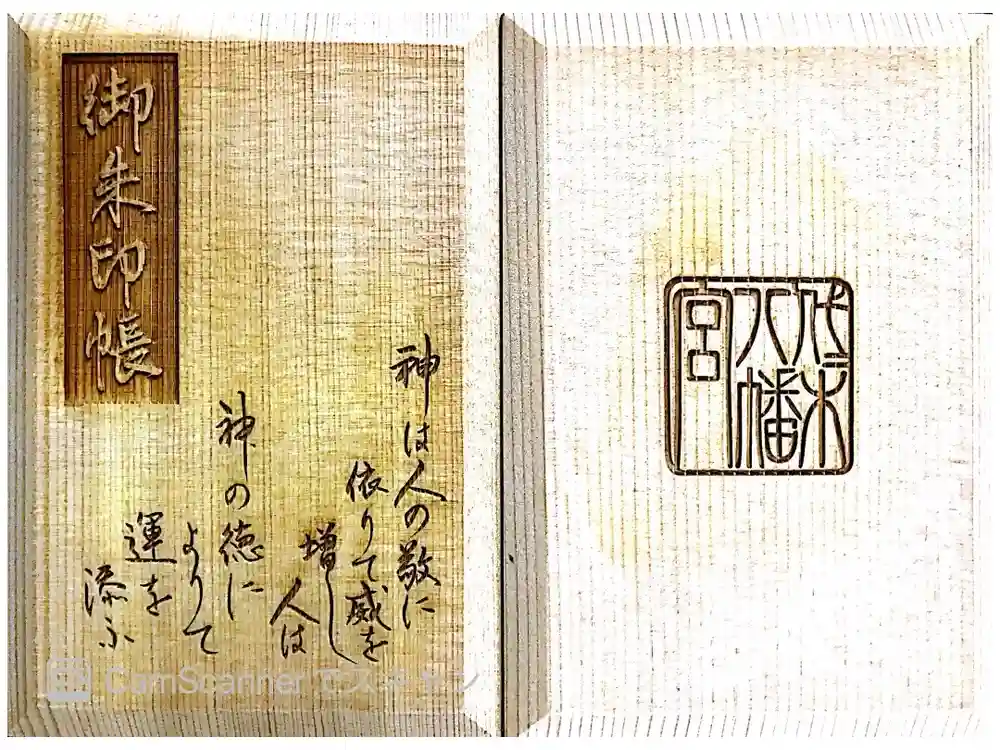 御朱印帳
神は人の敬に
依りて威を
増し
人は
神の徳に
よりて
運を
添ふ
代々木
八幡
宮
CamScannerでスキャン